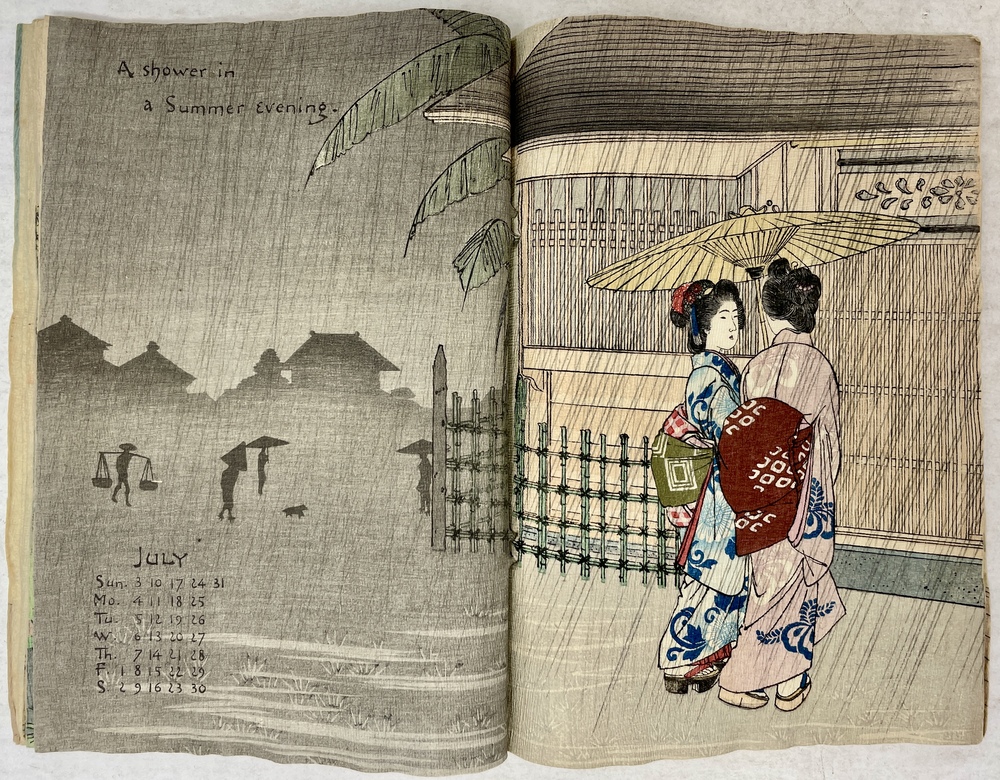 A shower in
a Summer Evening.
JULY
Sun. 3 10 17 24 31
Mo. 4 11 18 25
Tu. 5 12 19 26
W. 6 13 20 27
Th. 7 14 21 28
F. 1 8 15 22 29
S 2 9 16 23 30